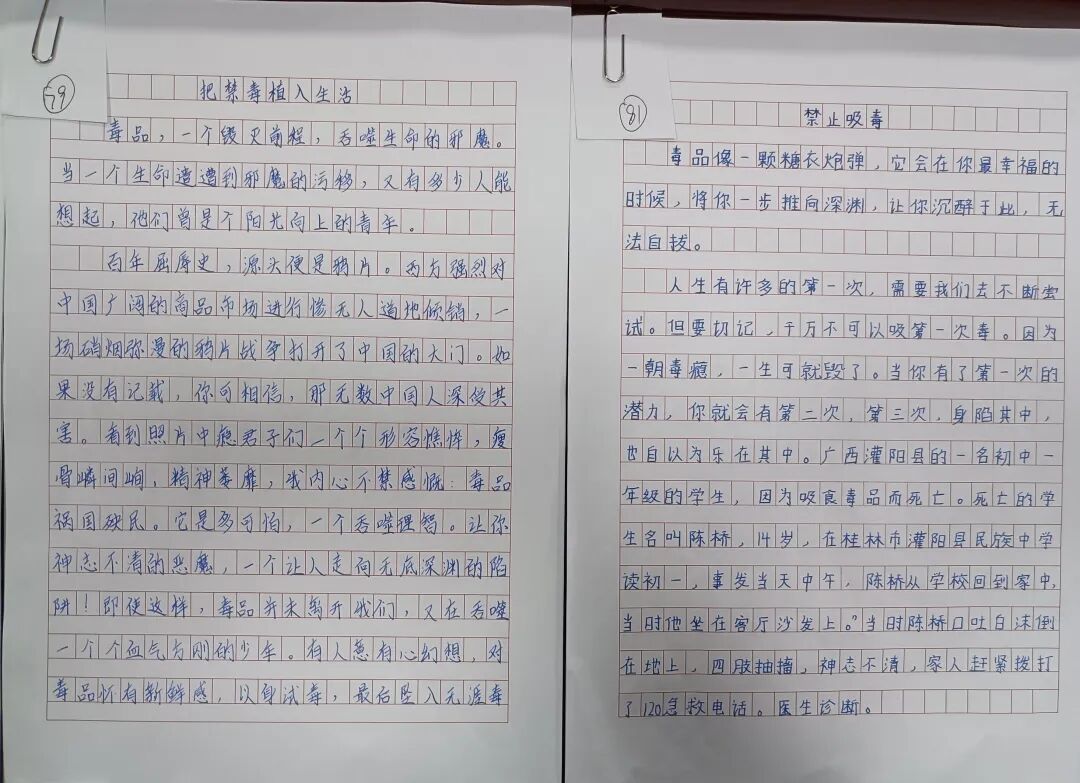 59
把禁毒植入生活
毒品，一个毁灭前程，吞噬生命的邪魔。
当一个生命遭遭到邪魔的污秽，又有多少人能
想起，他们曾是个阳光向上的青年。
百年屈辱史，源头便是鸦片。西方强烈对
中国广阔的商品市场进行惨无人道地倾销，一
场硝烟弥漫的鸦片战争打开了中国的大门。如
果没有记载，你可相信，那无数中国人深受其
害。看到照片中瘾君子们一个个形容憔悴，瘦
骨嶙间峋，精神萎靡，我内心不禁感慨：毒品
祸国殃民。它是多可怕，一个吞噬理智。让你
神志不清的恶魔，一个让人走向无底深渊的陷
阱！即使这样，毒品并未离开我们，又在吞噬
一个个血气方刚的少年。有人总有心幻想，对
毒品怀有新鲜感，以身试毒，最后坠入无涯毒
81
禁止吸毒
毒品像一颗糖衣炮弹，它会在你最幸福的
时候，将你一步推向深渊，让你沉醉于此，无
法自拔。
人生有许多的第一次，需要我们去不断尝
试。但要切记，千万不可以吸第一次毒。因为
一朝毒瘾，一生可就毁了。当你有了第一次的
潜力，你就会有第二次，第三次，身陷其中，
也自以为乐在其中。广西灌阳县的一名初中一
年级的学生，因为吸食毒品而死亡。死亡的学
生名叫陈桥，14岁，在桂林市灌阳县民族中学
读初一，事发当天中午，陈桥从学校回到家中，
当时他坐在客厅沙发上。”当时陈桥口吐白沫倒
在地上，四肢抽搐，神志不清，家人赶紧拨打
了120急救电话。医生诊断。